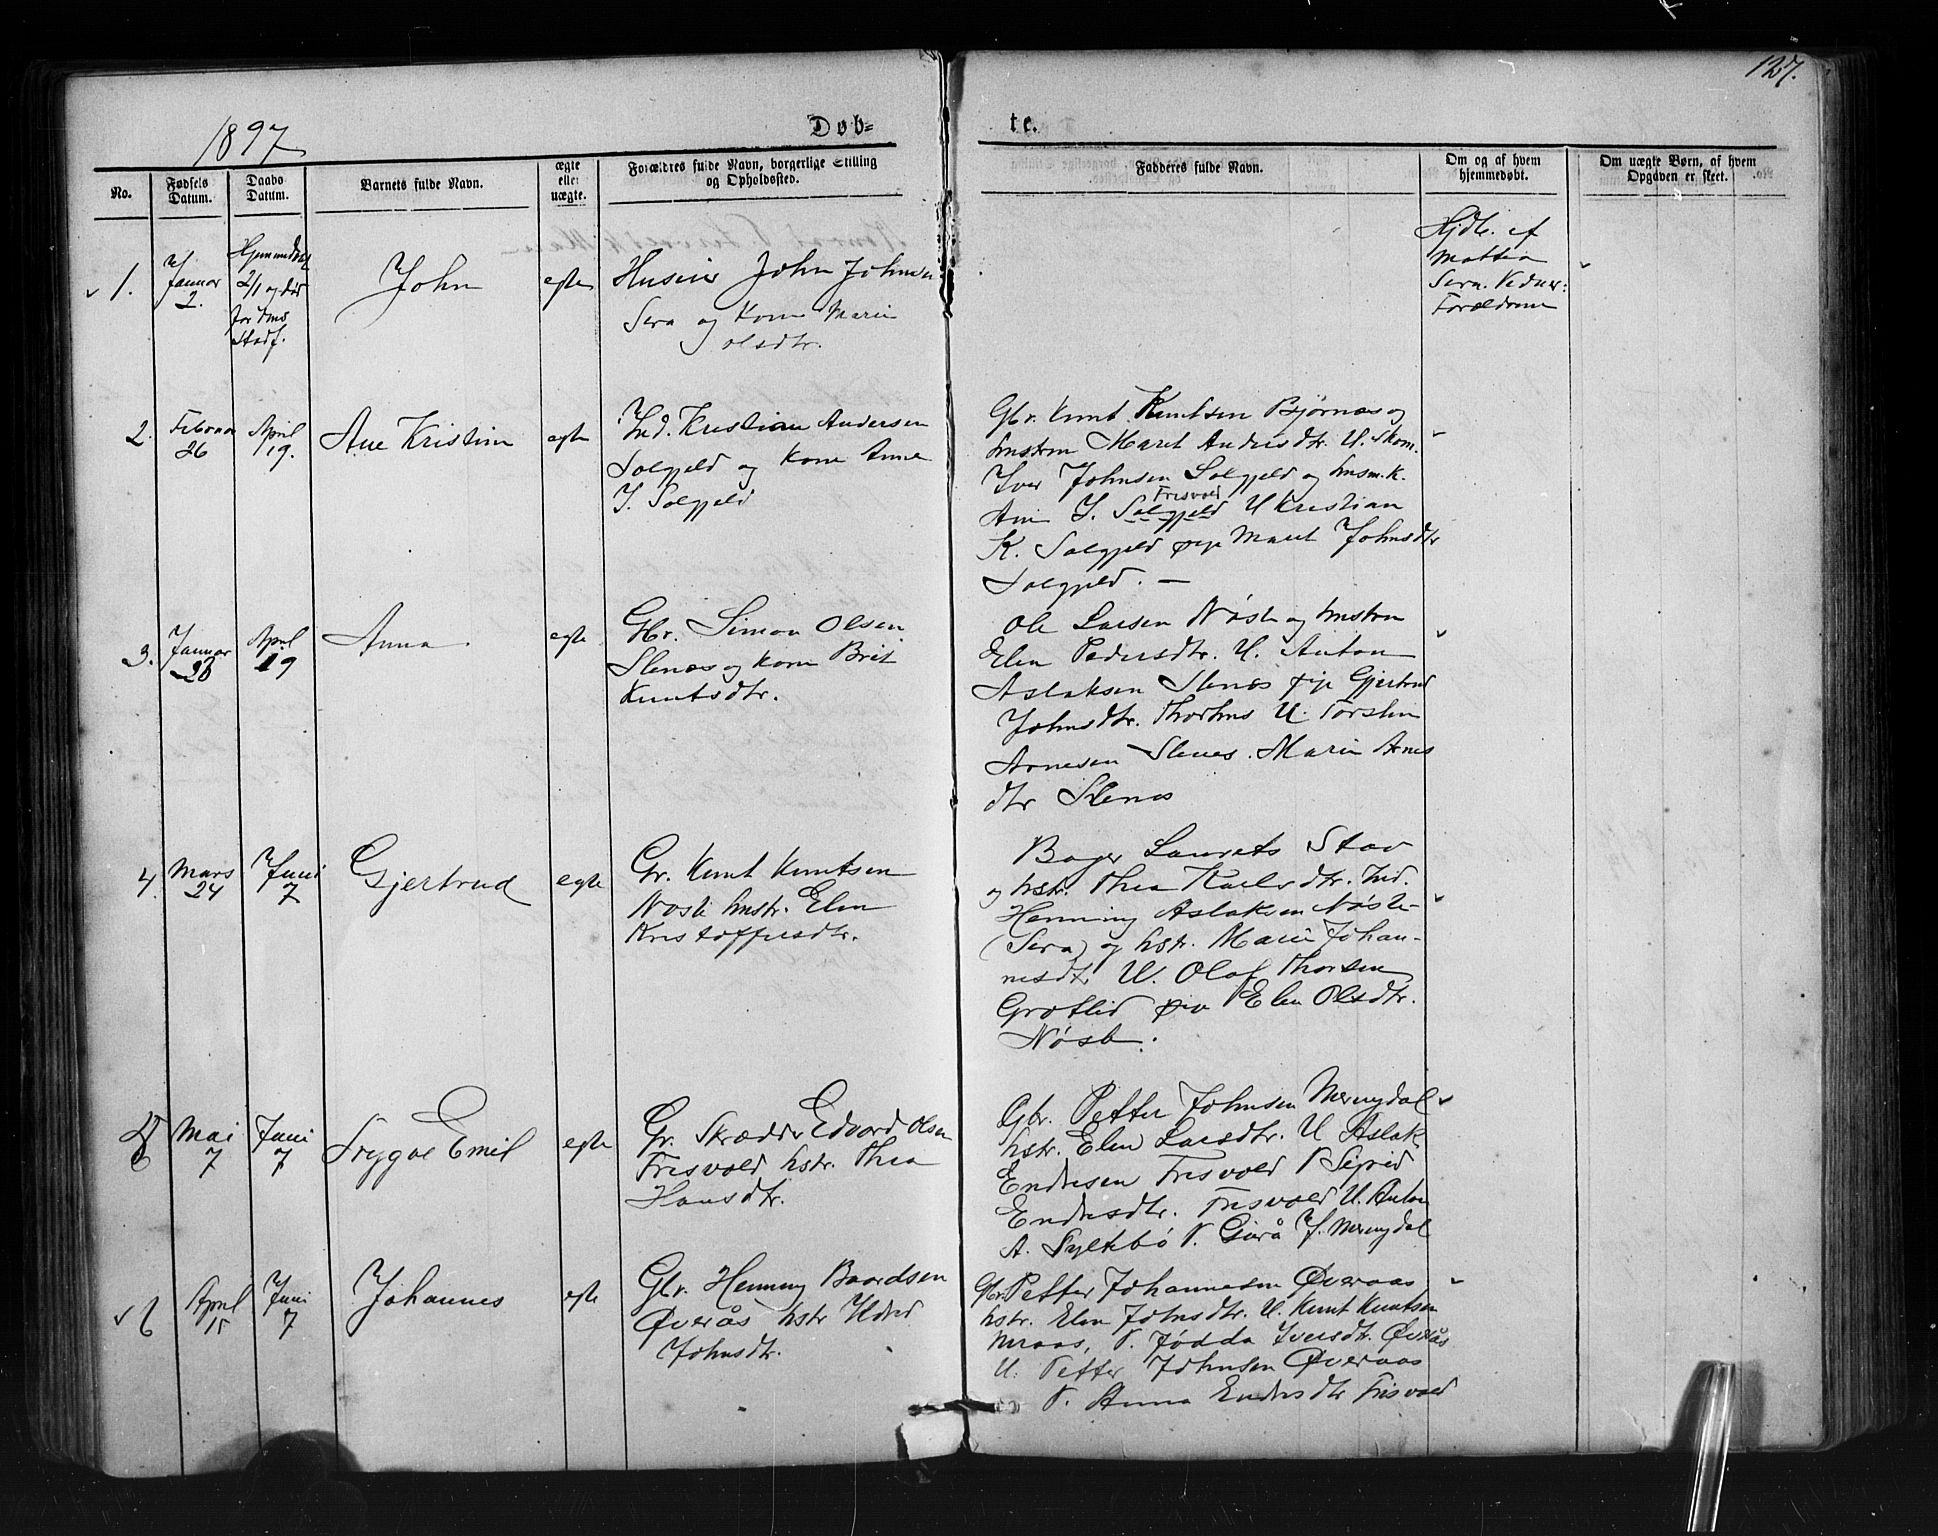 127.
1897
Døb=
te.
No.
Fødsels Datum.
Daabs Datum.
Barnets fulde Navn.
ægte eller uægte.
Forældres fulde Navn, borgerlige Stilling og Opholdssted.
Fadderes fulde Navn.
Om og af hvem hjemmedøbt.
Om uægte Børn, af hvem Opgaven er skeet.
1.
Januar
2.
2/1 og død
før dens
Stadf.
John
egte
John Johnsen
Sera og Kone Marie
Olsdtr.
Hjdb. af
Mattea
Sera. Vidner:
Forældrene
2.
Februar
26
April
19.
Ane Kristine
egte
Ind. Kristian Andersen
Solgjeld og Kone Anne
J. Solgjeld
Gbr. Knut Knutsen Bjørnås og
Hustru Maret Andersdtr. U. Skom.
Iver Johnsen Solgjeld og husm.k.
Frisvold
Ane J. Solgjeld U Kristian
K. Solgjeld pige Maret Johnsdtr
Solgjeld. —
3.
Januar
28
April
19
Anna
egte
Gbr. Simon Olsen
Slenes og Kone Brit
Knutsdtr.
Ole Larsen Nøste og hustru
Elen Pedersdtr. U. Anton
Aslaksen Slenes pige Gjertrud
Johnsdtr. U. Torstein
Arnesen Slenes. Marie Arnes
dtr Slenes
4.
Mars
24
Juni
7
Gjertrud
egte
Gr. Knut Knutsen
Nøste hustr. Elen
Kristoffersdtr.
Bager Laurats Stav
og hstr. Thea Karlsdtr. Ind.
Henning Aslaksen Nøste-
(Sera) og hstr. Marie Johan-
nesdtr U. Olaf Thorsen
Grøtlid pio Elen Olsdtr.
Nøste.
5
Mai
7
Juni
7
Trygve Emil
egte
Gr. Skrædder Edvard Olsen
Frisvold hstr. Thea
Hansdtr.
Gbr. Petter Johnsen Meringdal
hstr. Elen Larsdtr. U Aslak
Endresen Frisvold P Sigrid
Endresdtr. Frisvold U. Anton
A. Syltebø P. Gurå J. Meringdal
6
April
15
Juni
7
Johannes
egte
Gbr. Henning Baardsen
Øverås hstr Hdvd
Johnsdtr.
Gbr. Petter Johannesen Øveraas
hstr. Elen Johnsdtr. U. Knut Knutsen
Meraas, P. Jødda Iversdtr. Øverås
U. Petter Johnsen Øveraas
P. Anna Endresdtr Frisvold